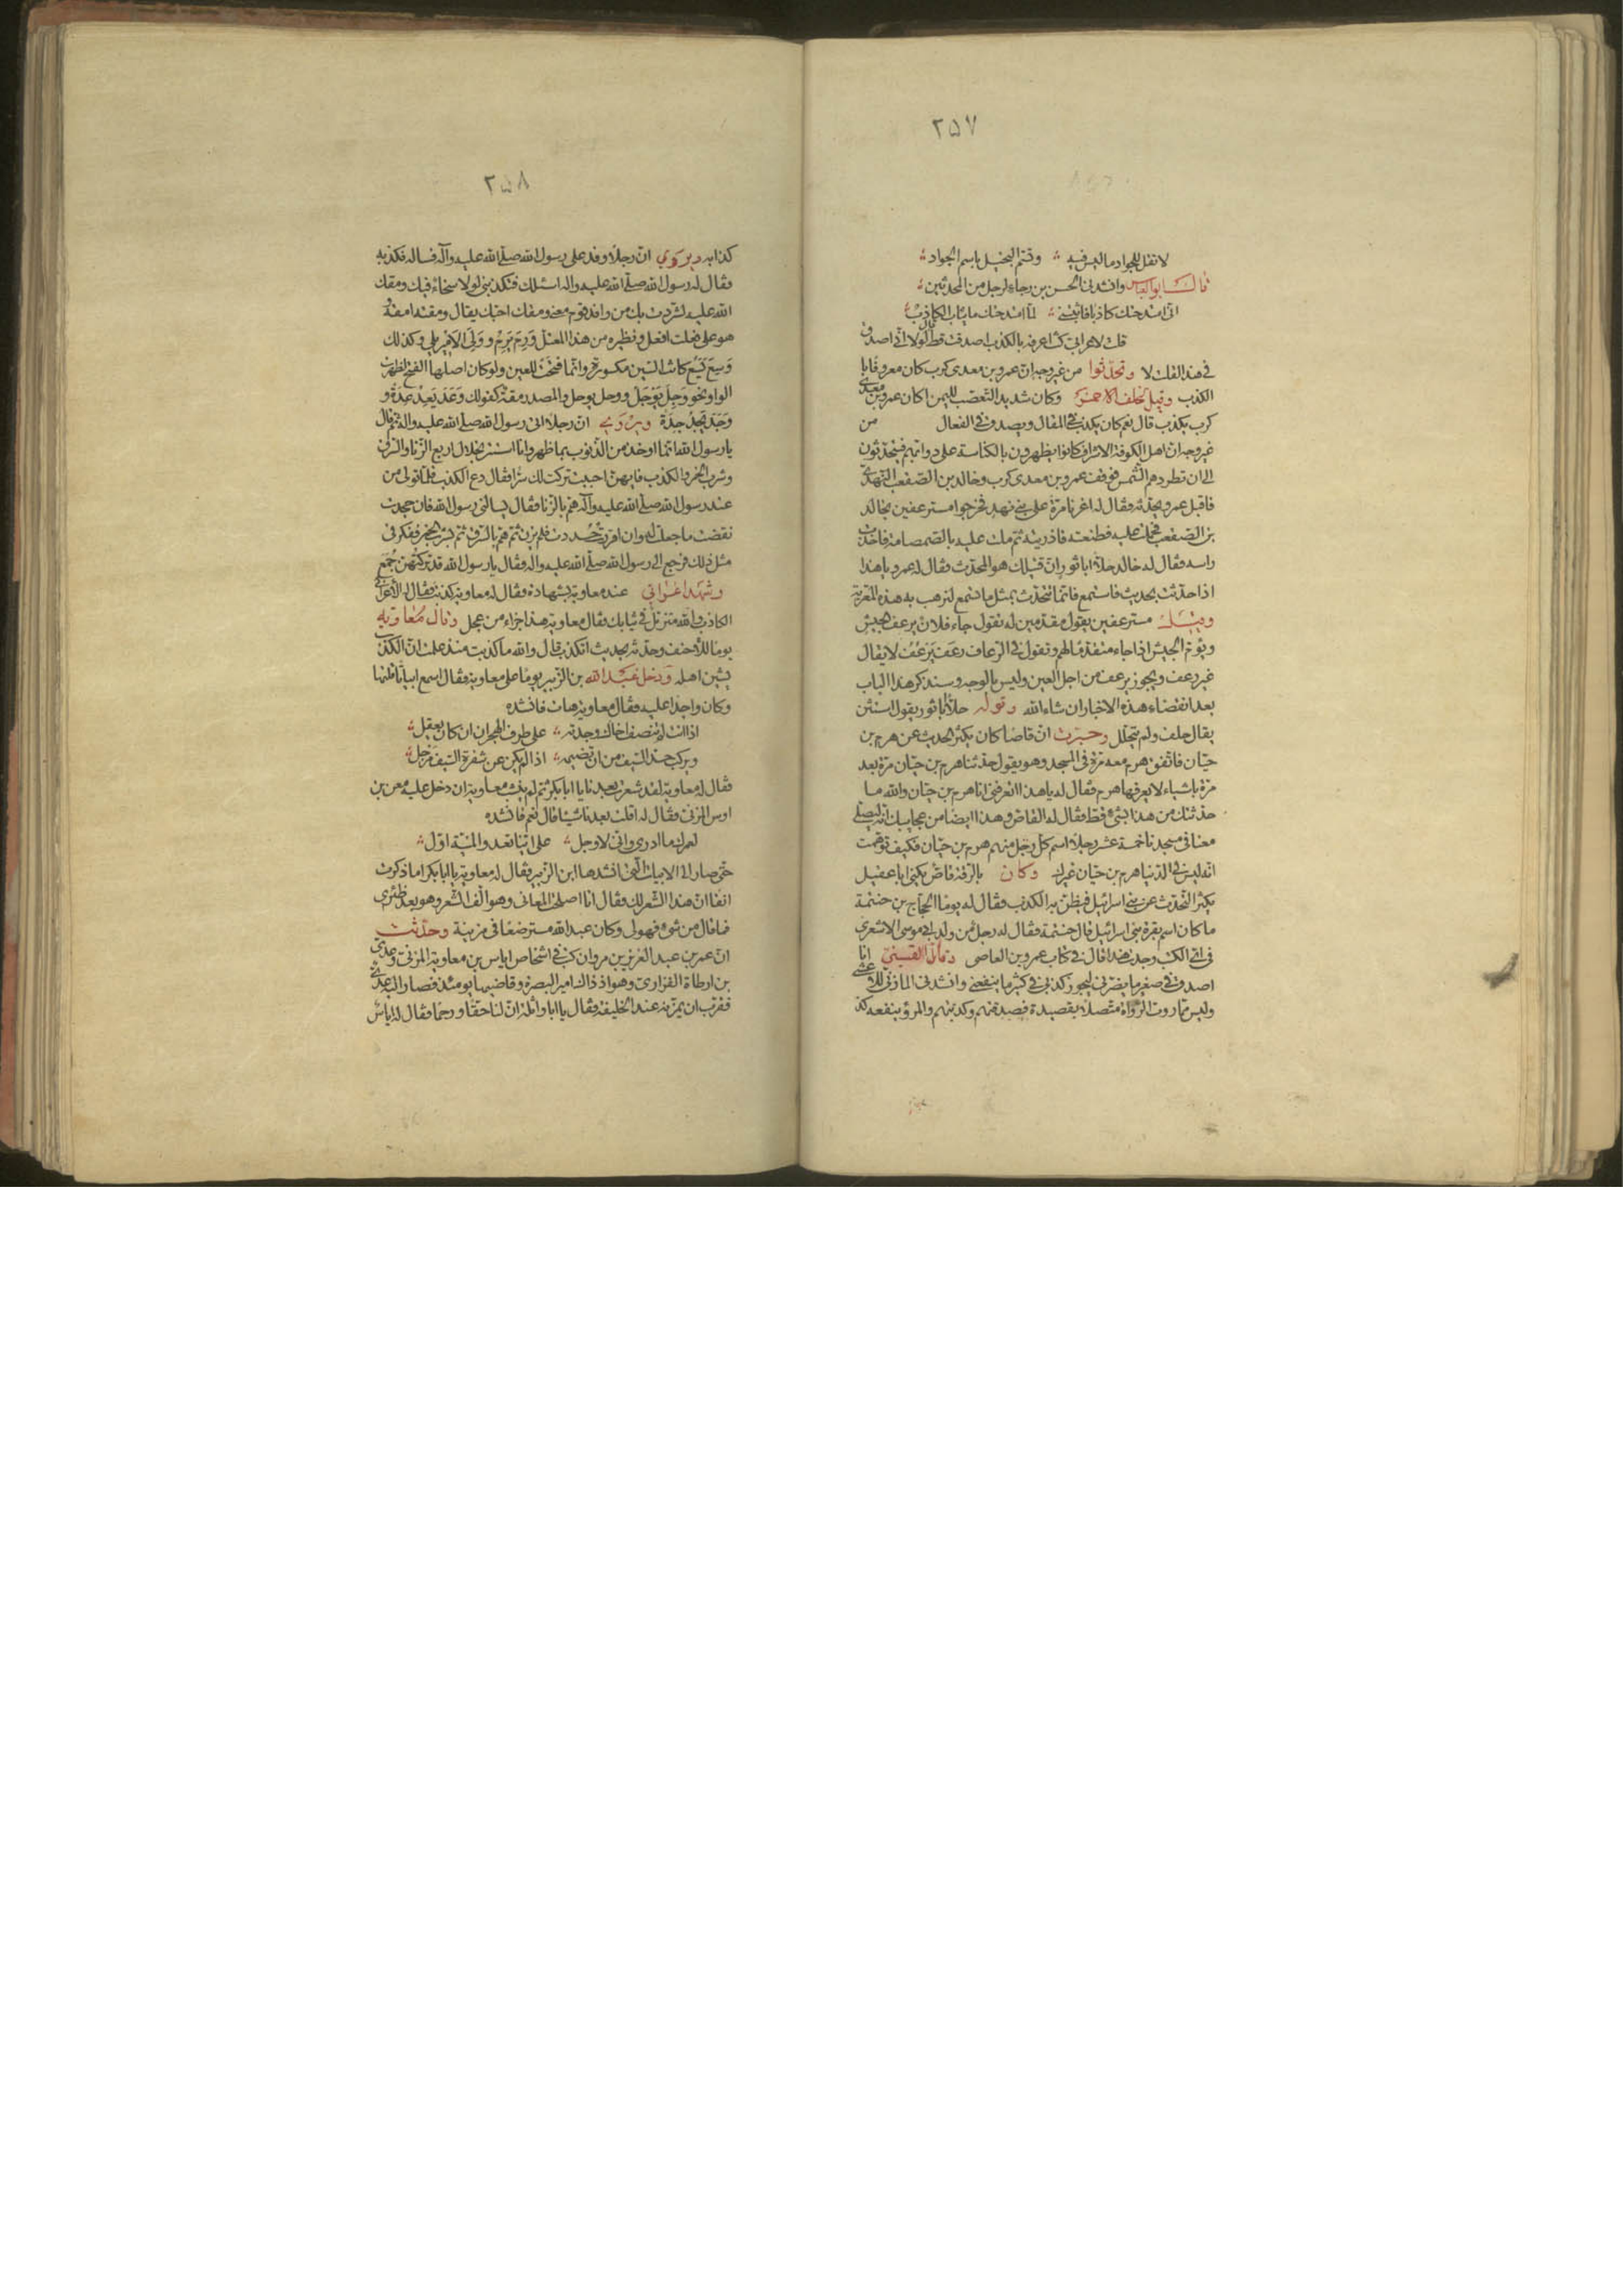 ٢٥٧
لا تقل للجواد ما ليس فيه وتسم البخيل باسم الجواد
قال ابو العباس وانشدنى الحسن بن رجاء لرجل من المحدثين
انى امتدحتك كاذبا فاثبتنى لما امتدحتك ما يثاب الكاذب
قلت لاعرابى كنت اعرفه بالكذب اصدقت قط قال لولا انى اصدق
فى هذا لقلت لا وتحدثوا من غير وجه ان عمرو بن معدى كرب كان معروفا با
الكذب وقيل لخلف الاحمر وكان شديد التعصب لليمن اكان عمرو بن معدى
كرب يكذب قال نعم كان يكذب فى المقال ويصدق فى الفعال من
غير وجه ان اهل الكوفة الاشراف كانوا يظهرون بالكناسة على دوابهم فيتحدثون
الى ان تطردهم الشمس فوقف عمرو بن معدى كرب وخالد بن الصقعب النهدى
فاقبل عمرو يحدثه فقال له اغرنا مرة على بنى نهد فخرجوا مسترعفين بخالد
بن الصقعب فحملت عليه فطعنته فاذريته ثم ملت عليه بالصمصامة فاخذت
راسه فقال له خالد حلا ابا ثور ان قتيلك هو المحدث فقال له عمرو يا هذا
اذا حدثت بحديث فاستمع فانما نتحدث بمثل ما تسمع لنرهب به هذه المعدية
وقيل مسترعفين يقول مقدمين له تقول جاء فلان يرعف الجيش
ويؤم الجيش اذا جاء متقدما لهم وتقول فى الرعاف رعف يرعف لا يقال
غير رعف ويجوز يرعف من اجل العين وليس بالوجه وسنذكر هذا الباب
بعد انقضاء هذه الاخبار ان شاء الله وقوله حلا ابا ثور يقول استثن
يقال حلف ولم يتحلل وخبرت ان قاصا كان يكثر الحديث عن هرم بن
حيان فاتفق هرم معه مرة فى المسجد وهو يقول حدثنا هرم بن حيان مرة بعد
مرة باشياء لا يعرفها هرم فقال له يا هذا اتعرفنى انا هرم بن حيان والله ما
حدثتك من هذا بشئ قط فقال له القاص وهذا ايضا من عجايبك انه ليصلى
معنا فى مسجدنا خمسة عشر رجلا اسم كل رجل منهم هرم بن حيان فكيف توهمت
انه ليس فى الدنيا هرم بن حيان غيرك وكان بالرقة قاص يكنى ابا عقيل
يكثر التحدث عن بنى اسرائيل فيظن به الكذب فقال له يوما الحجاج بن حنتمة
ما كان اسم بقرة بنى اسرائيل قال حنتمة فقال له رجل من ولد ابى موسى الاشعرى
فى اى الكتب وجدت هذا قال فى كتاب عمرو بن العاصى وقال القينى انا
اصدق فى صغير ما يضرنى ليجوز كذبى فى كثير ما ينفعنى وانشدنى المازنى للاعشى
وليس مما روت الرواة متصلا بقصيدة فصدقتهم وكذبتهم والمرؤ ينفعه كذ
٢٥٨
كذابه ويروى ان رجلا وفد على رسول الله صلى الله عليه وآله فساله فكذبه
فقال له رسول الله صلى الله عليه واله اسئلك فتكذبنى لولا سخاء فيك ومقك
الله عليه لشردت بك من وافد قوم معنى ومقك احبك يقال ومقته امقه
هو على فعلت افعل ونظيره من هذا المعتل ورم يرم وولى الامير يلى وكذلك
وسع يسع كانت السين مكسورة وانما فتحت للعين ولو كان اصلها الفتح لظهرت
الواو نحو وجل يوجل ووحل يوحل والمصدر مقة كقولك وعد يعد عدة و
وجد يجد جدة ويروى ان رجلا اتى رسول الله صلى الله عليه واله ثم قال
يا رسول الله انما اوخذ من الذنوب بما ظهر وانا استتر بخلال اربع الزنا والسرق
وشرب الخمر والكذب فايهن احببت تركت لك سرا فقال دع الكذب فلما تولى من
عند رسول الله صلى الله عليه وآله هم بالزنا فقال يسالنى رسول الله فان جحدت
نقضت ما جعلت له وان اقررت حددت فلم يزن ثم هم بالسرق ثم بشرب الخمر ففكر فى
مثل ذلك فرجع الى رسول الله صلى الله عليه واله فقال يا رسول الله قد تركتهن جمع
وشهد اعرابى عند معاوية بشهادة فقال له معاوية كذبت فقال له الاعرابى
الكاذب والله متزمل فى ثيابك فقال معاوية هذا جزاء من عجل وقال معاوية
يوما للاحنف وحدثه بحديث اتكذب قال والله ما كذبت منذ علمت ان الكذب
يشين اهله ودخل عبد الله بن الزبير يوما على معاوية فقال اسمع ابياتا قلتها
وكان واجدا عليه فقال معاوية هات فانشده
اذا انت لم تنصف اخاك وجدته على طرف الهجران ان كان يعقل
ويركب حد السيف من ان تضيمه اذا لم يكن عن شفرة السيف مزحل
فقال له معاوية لقد شعرت بعدنا يا ابا بكر ثم لم ينشب معاوية ان دخل عليه معن بن
اوس المزنى فقال له اقلت بعدنا شيئا قال نعم فانشده
لعمرك ما ادرى وانى لاوجل على اينا تعدو المنية اول
حتى صار الى الابيات التى انشدها ابن الزبير فقال له معاوية يا ابا بكر اما ذكرت
انفا ان هذا الشعر لك فقال انا اصلحت المعانى وهو الف الشعر وهو بعد ظئرى
فما قال من شئ فهو لى وكان عبد الله مسترضعا فى مزينة وحدثت
ان عمر بن عبد العزيز بن مروان كتب فى اشخاص اياس بن معاوية المزنى وعدى
بن ارطاة الفزارى وهو اذ ذاك امير البصرة وقاضيها يومئذ فصار اليه عدى
فقرب ان يمزنه عند الخليفة فقال يا ابا واثلة ان لنا حقا ورحما فقال له اياس